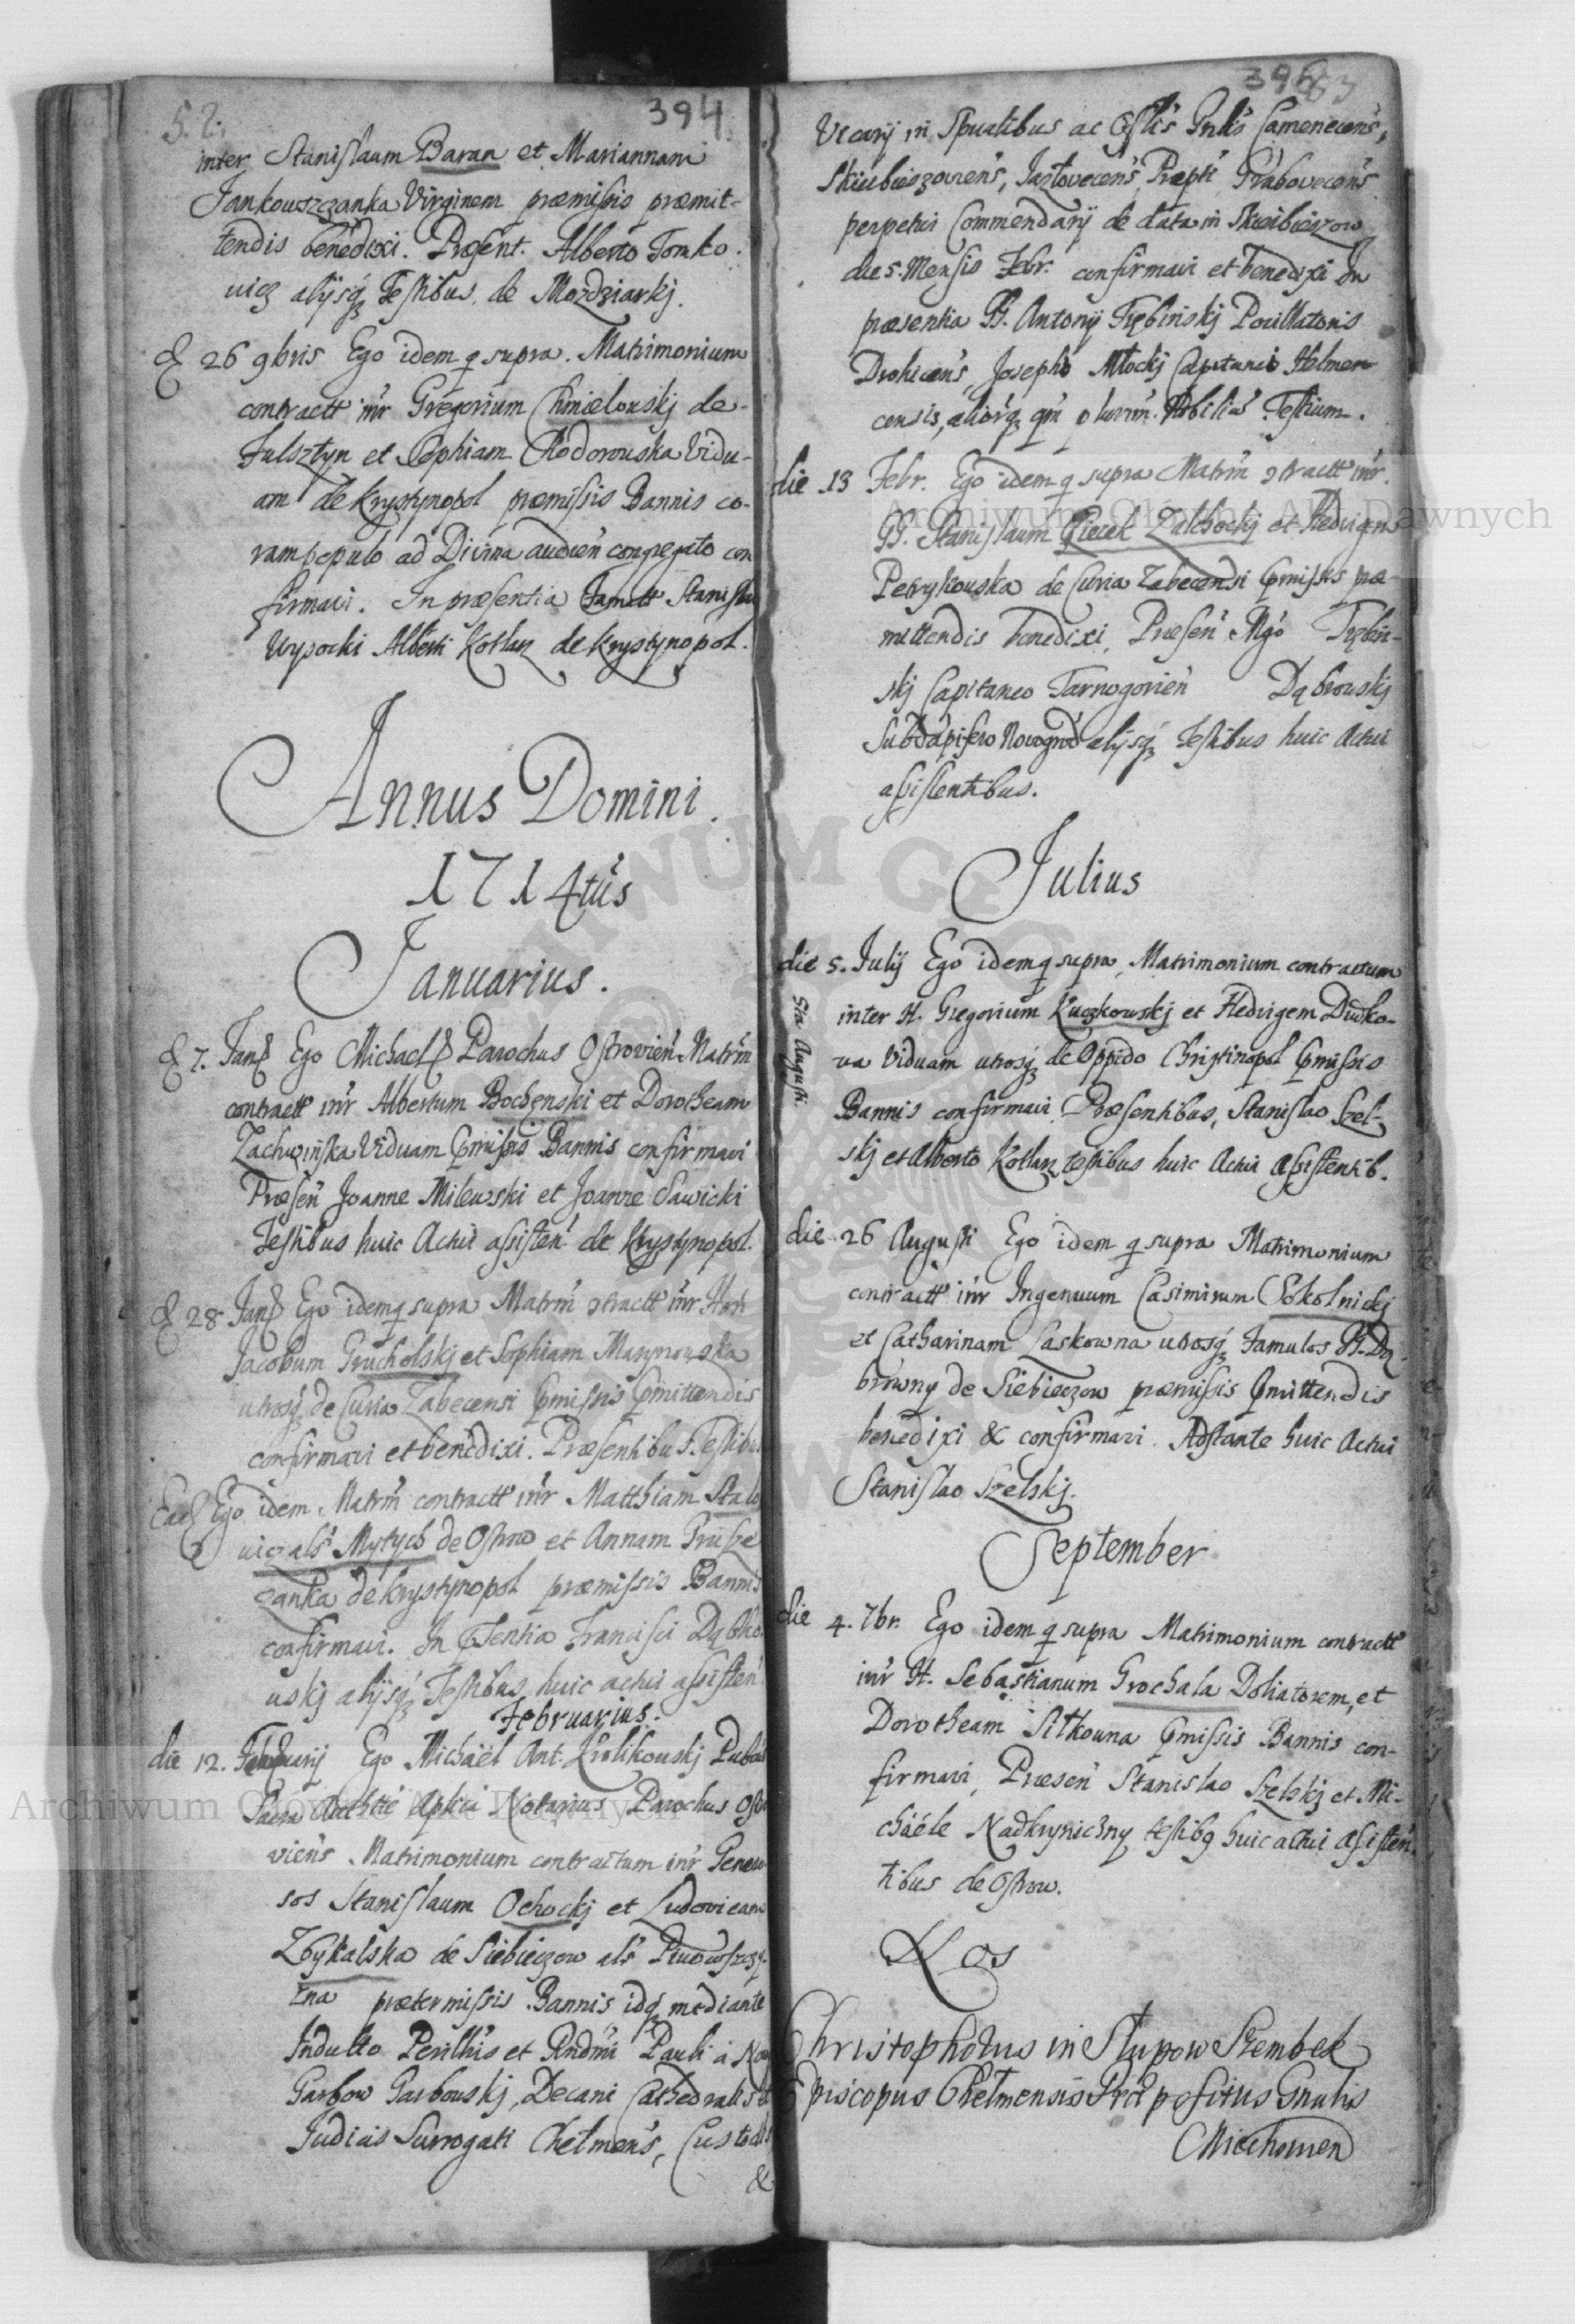 5. 2.
394
inter Stanislaum Baran et Mariannam
Jankowszczanka Virginem præmissis præmit-
tendis benedixi. Præsent. Alberto Tomko.
uicz alijsq₃ Testibus de Mozdziarkj.
d 26 9bris Ego idem q supra. Matrimonium
contractt inr Gregorium Chmielouskj de
Fulsztyn et Sophiam Chodorouska Vidu-
am de Krystynopol præmissis Bannis co-
ram populo ad Divina audien congregato con
firmavi. In præsentia Stanislai
Wysocki Alberti Kotlarz de Krystynopol.
Annus Domini.
1714tus
Januarius.
d 7. Jan Ego Michael Parochus Ostrovien Matrm
contractt inr Albertum Bochenski et Dorotheam
Zachwinska Viduam pmissis Bannis confirmavi
Præsen Joanne Milewski et Joanne Sawicki
Testibus huic Actui assisten de Krystynopol.
d 28 Jan Ego idem q supra Matrm 9tractt inr
Jacobum Grucholskj et Sophiam Marynouska
utrosq₃ de Curia Zabecensi pmissis pmittendis
confirmavi et benedixi. Præsentibus Testibus
Ead Ego idem Matrm contractt inr Matthiam Stalo
uicz als Mytych de Ostrow et Annam Prusze
zanka de Krystynopol præmissis Bannis
confirmavi. In psentia Francisci Dąbko
uskj alijsq₃ Testibus huic actui assisten
Februarius.
die 12. Februarij Ego Michaël Ant. Krolikouskj
Sacra Aplica Notarius Parochus Ostro
viens Matrimonium contractum inr Genero
sos Stanislaum Ochockj et Ludovicam
Zbykalska de Siebieczow als
zna prætermissis Bannis idq₃ mediante
Indulto Perillris et Rndmi Pauli à
Garbow Garbouskj, Decani Cathedralis et
Judicis Surrogati Chelmens, Custodis
&
395
83
Vicarij in Spualibus ac Gnlis Camenecens,
Skierbieszoviens, Jazlovecens, Præpti Grabovecens
perpetui Commendarij de data in Skierbieszow
die 5. Mensis Febr. confirmavi et benedixi In
præsentia GG. Antonij Trębinskj Pocillatoris
Drohicens, Josephi Młockj Capitanei
censis, aliorq₃ qm plurim. Nobiliu Testium.
die 13 Febr. Ego idem q supra Matrm 9tractt inr.
GG. Stanislaum Piecek Zalchockj et Hedvigem
Petrykouska de Curia Zabecensi pmissis præ-
mittendis benedixi, Præsen Mgo Trębin-
skj Capitaneo Tarnogorien Dąbrouskj
Subdapifero Novogrod alijsq₃ Testibus huic Actui
assistentibus.
Julius
die 5. Julij Ego idem q supra, Matrimonium contractum
inter H. Gregorium Kuczkowskj et Hedvigem Dudko-
va Viduam utrosq₃ de Oppido Christinopol pmissis
Bannis confirmavi. Præsentibus, Stanislao Szel-
skj et Alberto Kotlarz testibus huic Actui assistentib.
Augusti.
die 26 Augusti Ego idem q supra Matrimonium
contractt inr Ingenuum Casimirum Sokolnickj
et Catharinam Laskowna utrosq₃ Famulos
browny de Siebieczow præmissis pmittendis
benedixi & confirmavi. Adstante huic Actui
Stanislao Szelskj.
September
die 4. 7br. Ego idem q supra Matrimonium contractt
inr H. Sebastianum Grochala Doliatorem, et
Dorotheam Sitkouna pmissis Bannis con-
firmavi, Præsen Stanislao Szelskj et Mi-
chaéle Nadkryniczny testib9 huic actui assisten-
tibus de Ostrow.
Nos
Christophorus in Slupow Szembek
Episcopus Chelmensis Præpositus Gnalis
Miechovien
Archiwum Główne Akt Dawnych